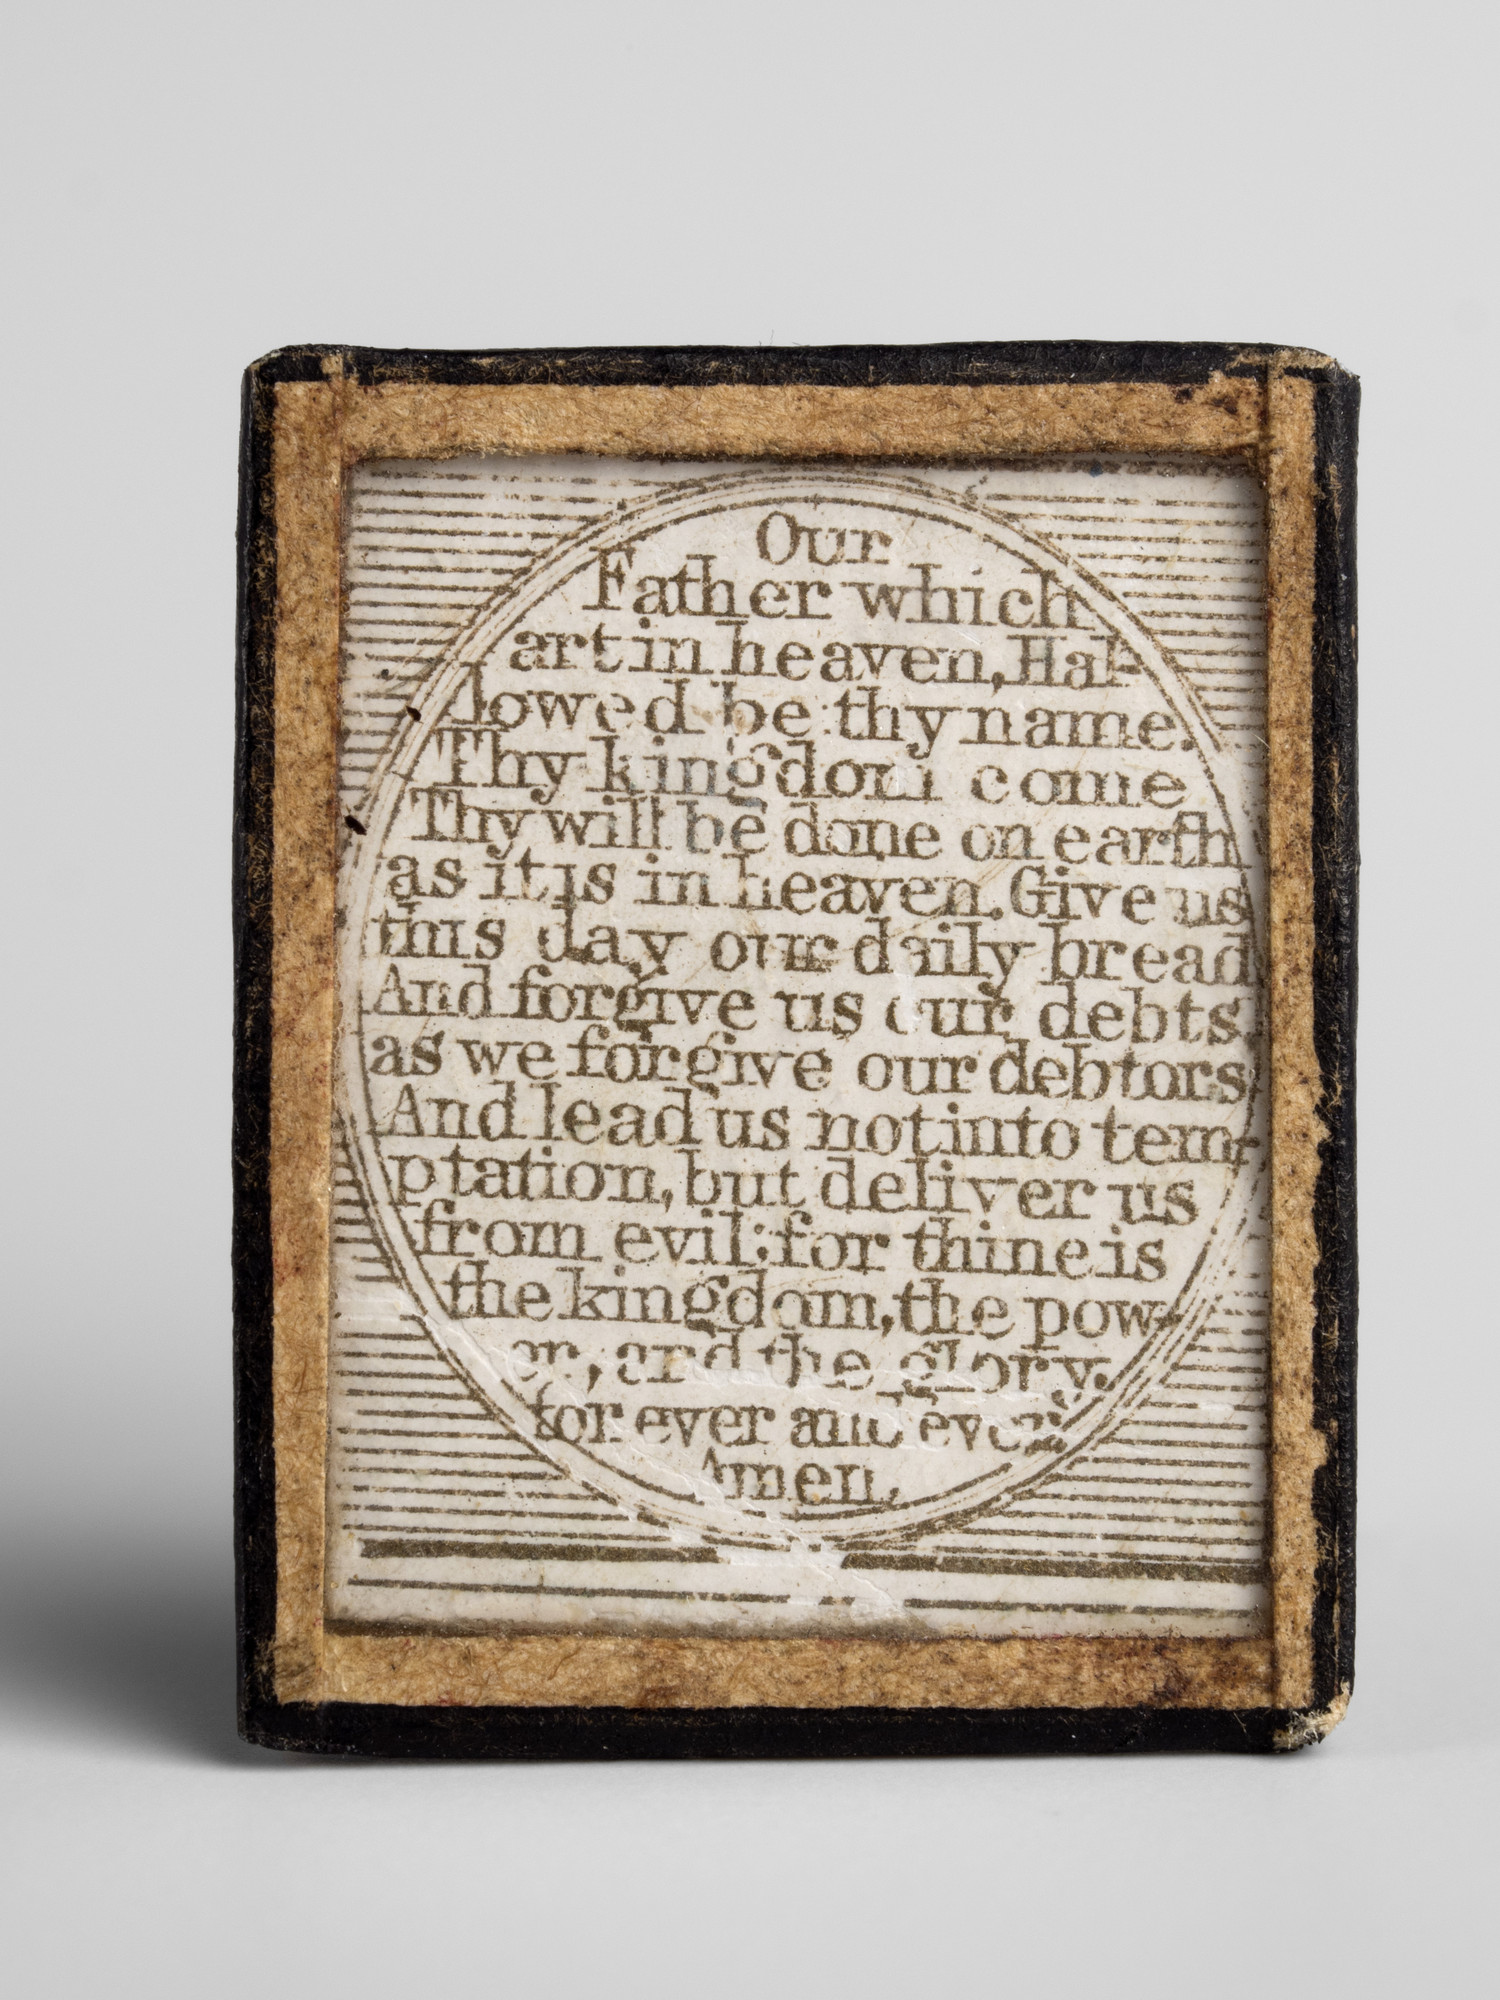 Our
Father which
art in heaven, Hal-
lowed be thy name.
Thy kingdom come
Thy will be done on earth
as it is in heaven. Give us
this day our daily bread
And forgive us our debts.
as we forgive our debtors
And lead us not into tem-
ptation, but deliver us
from evil: for thine is
the kingdom, the pow-
er, and the glory.
for ever and ever.
Amen.